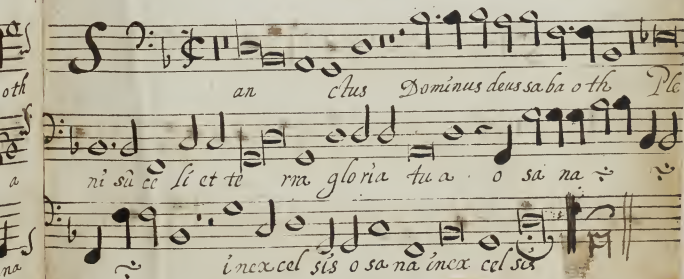 S an ctus Dominus deus sa ba o th Ple
ni sũ ce li et te rra gloria tu a · o sa na
in ex cel sis o sa na in ex cel sis
oth
a
na